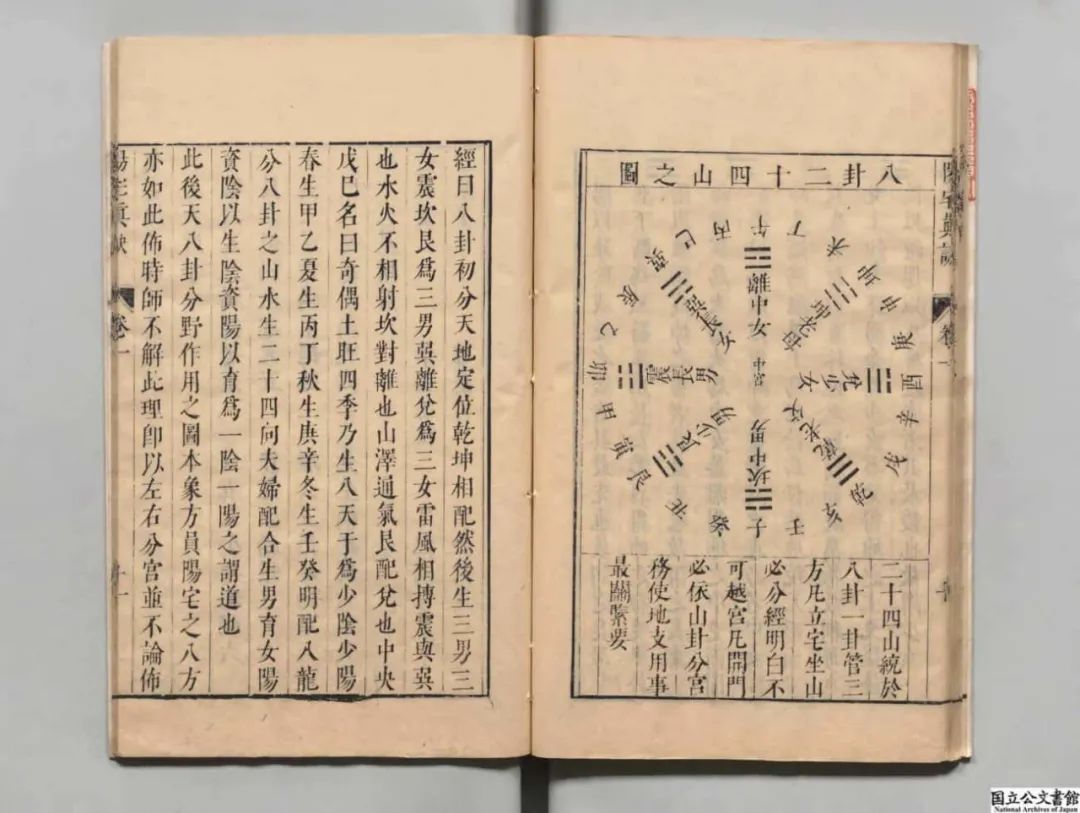 八卦二十四山之圖
午
丁
未
坤
申
庚
酉
辛
戌
乾
亥
壬
子
癸
丑
艮
寅
甲
卯
乙
辰
巽
巳
丙
離中女
坤老母
兌少女
乾老父
坎中男
艮少男
震長男
巽長女
中宮
二十四山統於
八卦一卦管三
方凡立宅坐山
必分經明白不
可越宮凡開門
必依山卦分宮
務使地支用事
最關緊要
經曰八卦初分天地定位乾坤相配然後生三男三
女震坎艮爲三男巽離兌爲三女雷風相摶震與巽
也水火不相射坎對離也山澤通氣艮配兌也中央
戊巳名曰奇偶土旺四季乃生八天于爲少陰少陽
春生甲乙夏生丙丁秋生庚辛冬生壬癸明配八龍
分八卦之山水生二十四向夫婦配合生男育女陽
資陰以生陰資陽以育爲一陰一陽之謂道也
此後天八卦分野作用之圖本象方員陽宅之八方
亦如此佈時師不解此理卽以左右分宮並不論佈
卷一
十一
国立公文書館
National Archives of Japan